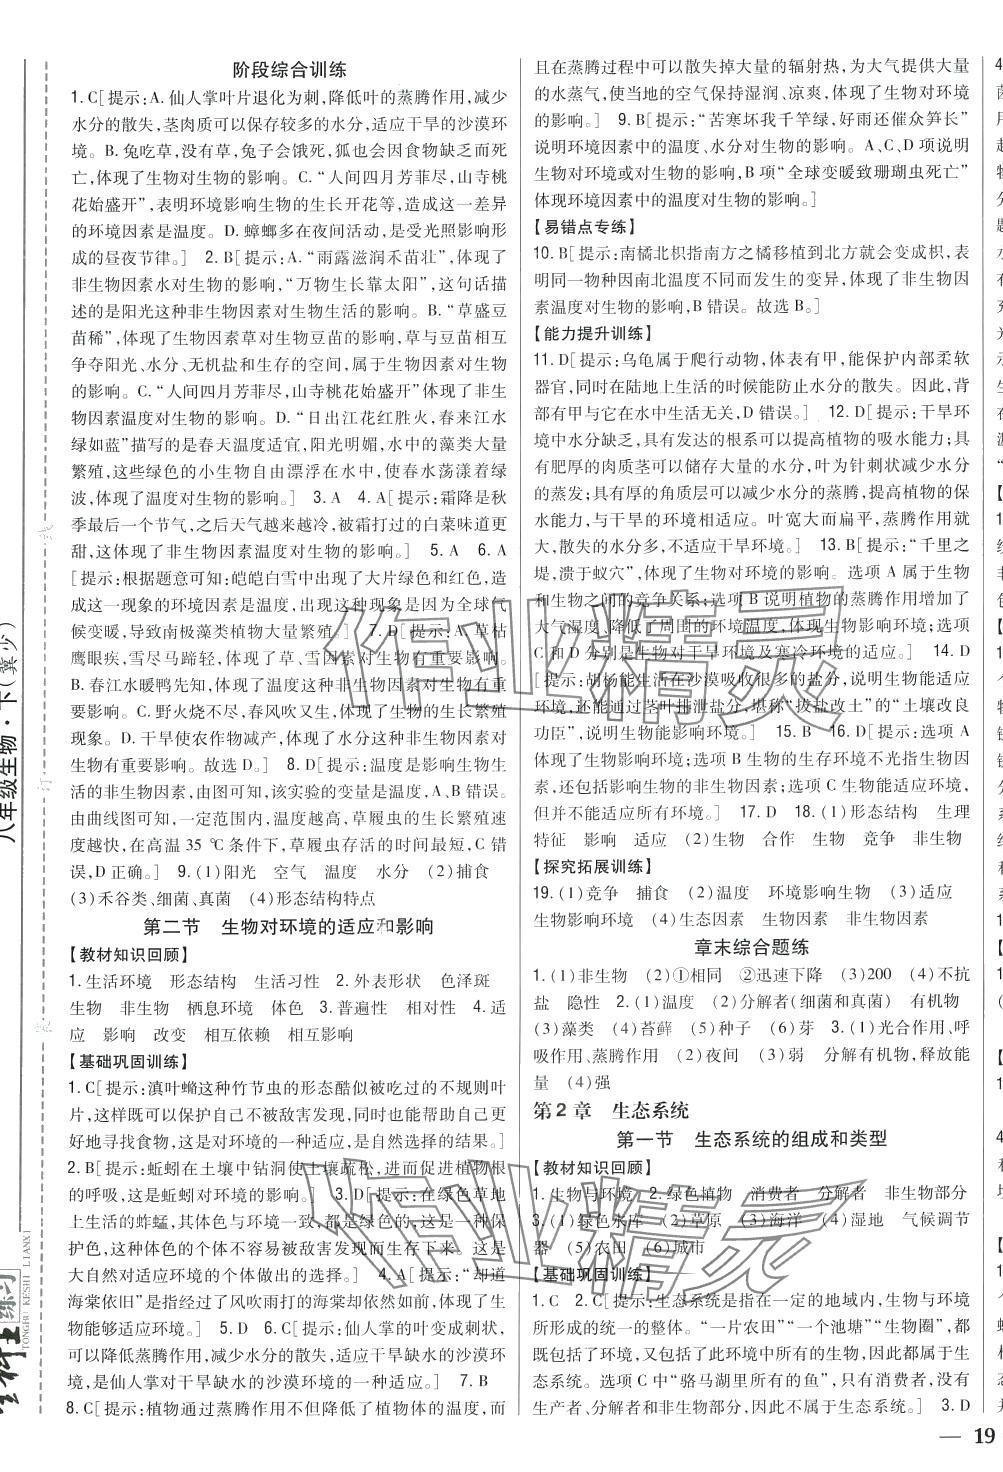 阶段综合训练
1. C[提示:A. 仙人掌叶片退化为刺,降低叶的蒸腾作用,减少
水分的散失,茎肉质可以保存较多的水分,适应干旱的沙漠环
境。B. 兔吃草,没有草,兔子会饿死,狐也会因食物缺乏而死
亡,体现了生物对生物的影响。C. “人间四月芳菲尽,山寺桃
花始盛开”,表明环境影响生物的生长开花等,造成这一差异
的环境因素是温度。D. 蟑螂多在夜间活动,是受光照影响形
成的昼夜节律。] 2. B[提示:A. “雨露滋润禾苗壮”,体现了
非生物因素水对生物的影响,“万物生长靠太阳”,这句话描
述的是阳光这种非生物因素对生物生活的影响。B. “草盛豆
苗稀”,体现了生物因素草对生物豆苗的影响,草与豆苗相互
争夺阳光、水分、无机盐和生存的空间,属于生物因素对生物
的影响。C. “人间四月芳菲尽,山寺桃花始盛开”体现了非生
物因素温度对生物的影响。D. “日出江花红胜火,春来江水
绿如蓝”描写的是春天温度适宜,阳光明媚,水中的藻类大量
繁殖,这些绿色的小生物自由漂浮在水中,使春水荡漾着绿
波,体现了温度对生物的影响。] 3. A 4. A[提示:霜降是秋
季最后一个节气,之后天气越来越冷,被霜打过的白菜味道更
甜,这体现了非生物因素温度对生物的影响。] 5. A 6. A
[提示:根据题意可知:皑皑白雪中出现了大片绿色和红色,造
成这一现象的环境因素是温度。出现这种现象是因为全球气
候变暖,导致南极藻类植物大量繁殖。] 7. D[提示:A. 草枯
鹰眼疾,雪尽马蹄轻,体现了草、雪因素对生物有重要影响。
B. 春江水暖鸭先知,体现了温度这种非生物因素对生物有重
要影响。C. 野火烧不尽,春风吹又生,体现了生物的生长繁殖
现象。D. 干旱使农作物减产,体现了水分这种非生物因素对
生物有重要影响。故选 D。] 8. D[提示:温度是影响生物生
活的非生物因素,由图可知,该实验的变量是温度,A、B错误。
由曲线图可知,一定范围内,温度越高,草履虫的生长繁殖速
度越快,在高温 35 ℃条件下,草履虫存活的时间最短,C 错
误,D正确。] 9. (1)阳光 空气 温度 水分 (2)捕食
(3)禾谷类、细菌、真菌 (4)形态结构特点
第二节 生物对环境的适应和影响
【教材知识回顾】
1. 生活环境 形态结构 生活习性 2. 外表形状 色泽斑
生物 非生物 栖息环境 体色 3. 普遍性 相对性 4. 适
应 影响 改变 相互依赖 相互影响
【基础巩固训练】
1. C[提示:滇叶䗛这种竹节虫的形态酷似被吃过的不规则叶
片,这样既可以保护自己不被敌害发现,同时也能帮助自己更
好地寻找食物。这是对环境的一种适应,是自然选择的结果。]
2. B[提示:蚯蚓在土壤中钻洞使土壤疏松,进而促进植物根
的呼吸,这是蚯蚓对环境的影响。] 3. D[提示:在绿色草地
上生活的蚱蜢,其体色与环境一致,都是绿色的,这是一种保
护色,这种体色的生物不容易被敌害发现而生存下来。这是
大自然对适应环境的个体做出的选择。] 4. A[提示:“却道
海棠依旧”是指经过了风吹雨打的海棠却依然如故,体现了生
物能够适应环境。] 5. D 6. C[提示:仙人掌的叶变成刺状,
可以降低蒸腾作用,减少水分的散失,适应干旱缺水的沙漠环
境,是仙人掌对干旱缺水的沙漠环境的一种适应。] 7. B
8. C[提示:植物通过蒸腾作用不但降低了植物体的温度,而
且在蒸腾过程中可以散失掉大量的辐射热,为大气提供大量
的水蒸气,使当地的空气保持湿润、凉爽,体现了生物对环境
的影响。] 9. B[提示:“苦寒坏我千竿绿,好雨还催众笋长”
说明环境因素中的温度、水分对生物的影响。A、C、D 项说明
生物对环境或对生物的影响,B 项“全球变暖致珊瑚虫死亡”
体现环境因素中的温度对生物的影响。]
【易错点专练】
10. B[提示:南橘北枳指南方之橘移植到北方就会变成枳,表
明同一物种因南北温度不同而发生的变异,体现了非生物因
素温度对生物的影响,B 错误。故选 B。]
【能力提升训练】
11. D[提示:乌龟属于爬行动物,体表有甲,能保护内部柔软
器官,同时在陆地上生活的时候能防止水分的散失。因此,背
部有甲与它在水中生活无关,D 错误。] 12. D[提示:干旱环
境中水分缺乏,具有发达的根系可以提高植物的吸水能力;具
有肥厚的肉质茎可以储存大量的水分,叶为针刺状减少水分
的蒸发;具有厚的角质层可以减少水分的蒸腾,提高植物的保
水能力,与干旱的环境相适应。叶宽大而扁平,蒸腾作用就
大,散失的水分多,不适应干旱环境。] 13. B[提示:“千里之
堤,溃于蚁穴”,体现了生物对环境的影响。选项 A 属于生物
和生物之间的竞争关系;选项 B 说明植物的蒸腾作用增加了
大气湿度、降低了周围的环境温度,体现生物影响环境;选项
C 和 D 分别是生物对干旱环境及寒冷环境的适应。] 14. D
[提示:胡杨能生活在沙漠吸收很多的盐分,体现生物适应环
境,而它能通过茎叶排泄盐分,堪称“拔盐改土”的“土壤改良
功臣”,说明生物能影响环境。] 15. A 16. D[提示:选项 A
体现了生物能适应环境;选项 B 生物的生存环境不光指生物因
素,还包括环境中影响生物的非生物因素;选项 C 生物能适应环境,
但并不能适应所有环境。] 17. D 18. (1)形态结构 生理
特征 影响 适应 (2)生物 合作 生物 竞争 非生物
【探究拓展训练】
19. (1)竞争 捕食 (2)温度 环境影响生物 (3)适应
生物影响环境 (4)生态因素 生物因素 非生物因素
章末综合题练
1. (1)非生物 (2)①相同 ②迅速下降 (3)200 (4)不抗
盐 隐性 2. (1)温度 (2)分解者(细菌和真菌) 有机物
(3)藻类 (4)苔藓 (5)种子 (6)芽 3. (1)光合作用、呼
吸作用、蒸腾作用 (2)夜间 (3)弱 分解有机物,释放能
量 (4)强
第 2 章 生态系统
第一节 生态系统的组成和类型
【教材知识回顾】
1. 生物与环境 2. 绿色植物 消费者 分解者 非生物部分
3. (1)绿色水库 (2)草原 (3)海洋 (4)湿地 气候调节
器 (5)农田 (6)城市
【基础巩固训练】
1. C 2. C[提示:生态系统是指在一定的地域内,生物与环境
所形成的统一的整体。“一片农田”“一个池塘”“生物圈”,都
既包括了环境,又包括了此环境中所有的生物,因此都属于生
态系统。选项 C 中“骆马湖里所有的鱼”,只有消费者,没有
生产者、分解者和非生物部分,因此不属于生态系统。] 3. D
— 19
八年级生物·下(冀少)
全科王
练习
TONGBU KESHI LIANXI
作业精灵
作业精灵